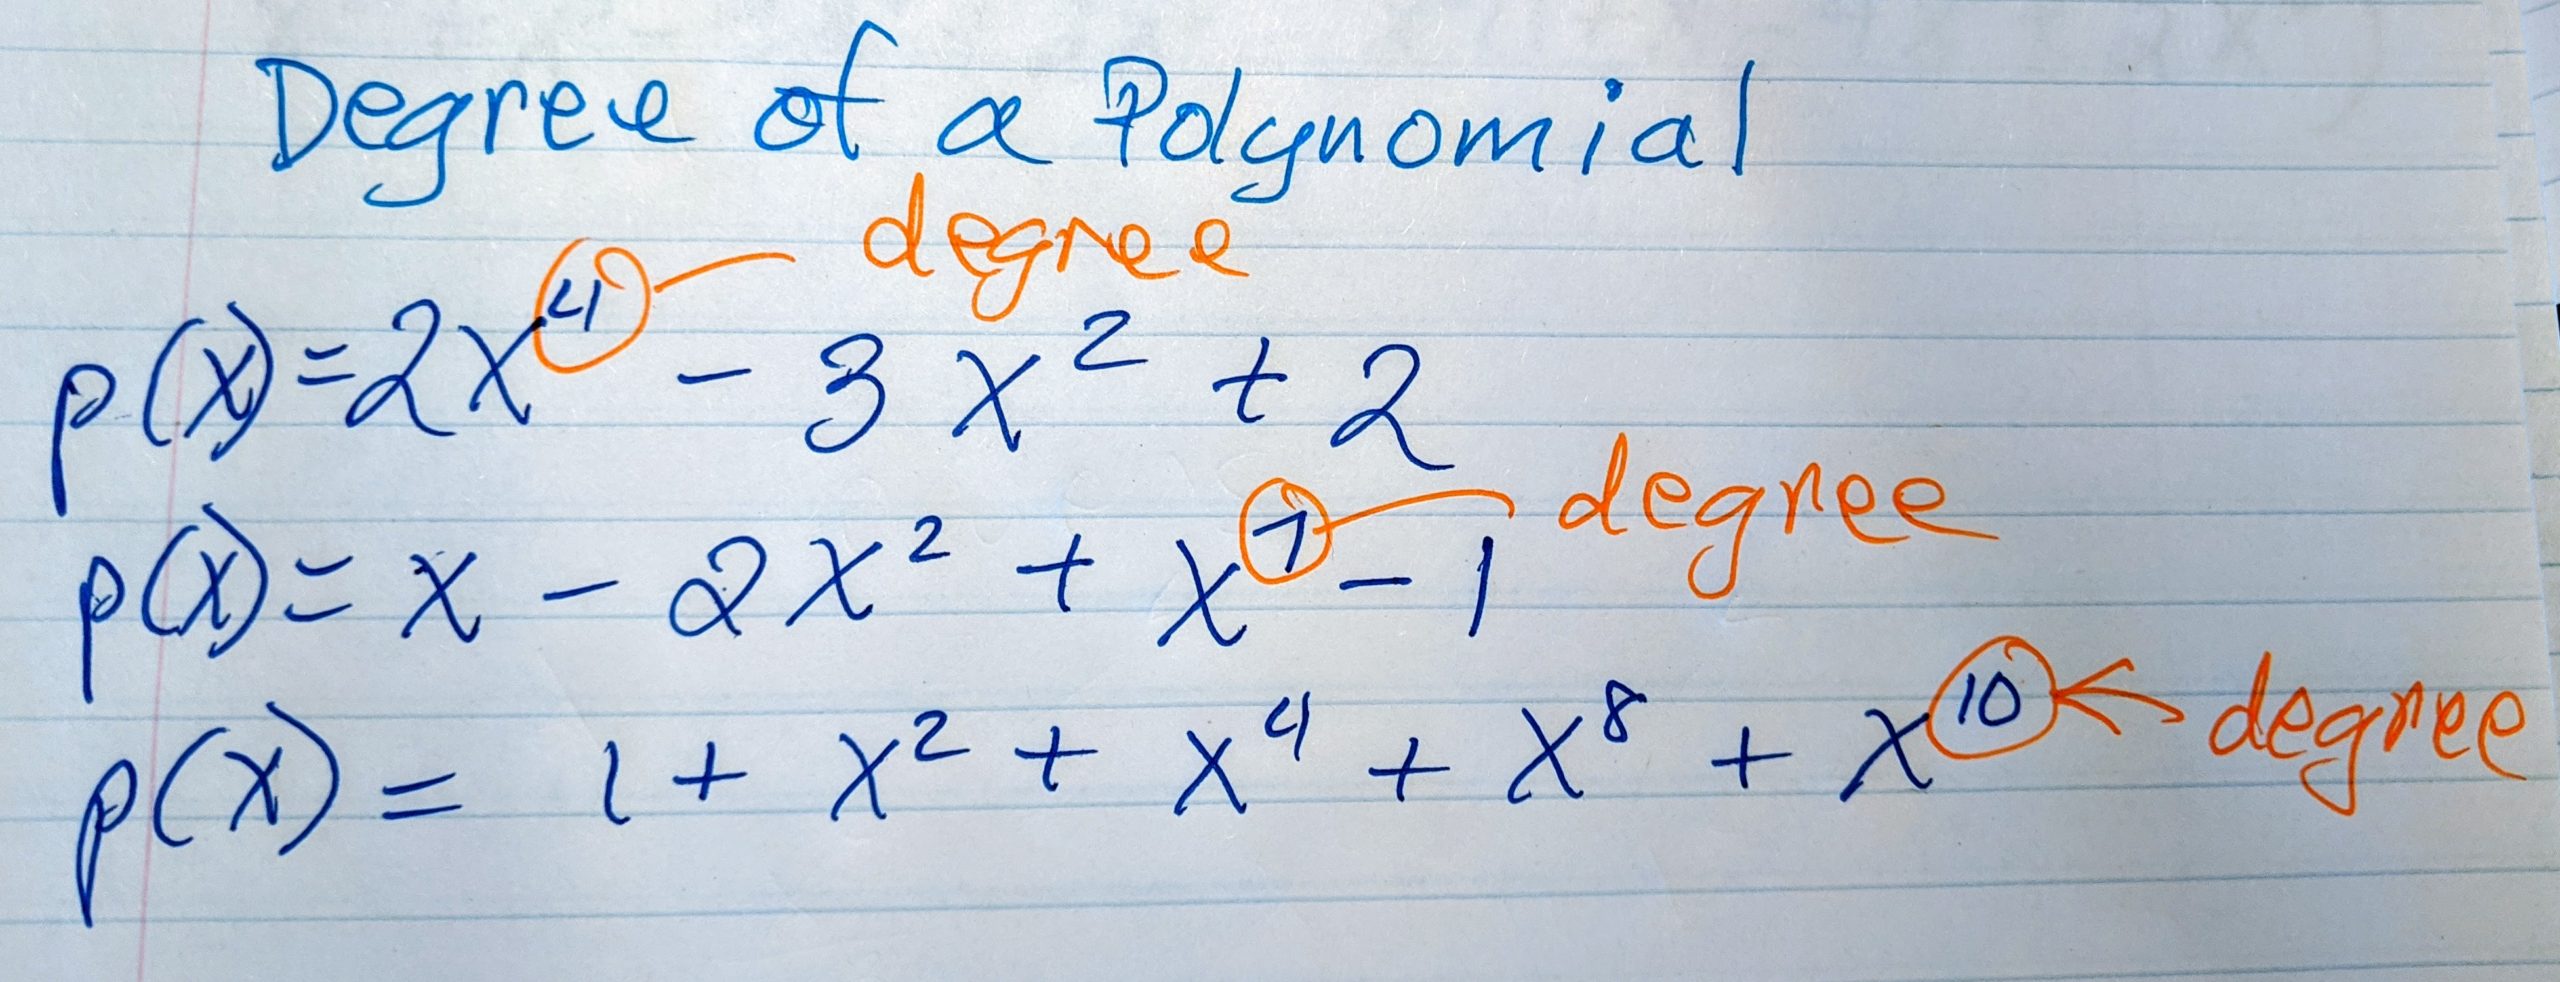 Degree of a Polynomial
degree
p(x)=2x⁴ - 3x² + 2
degree
p(x)= x - 2x² + x⁷ - 1
p(x) = 1 + x² + x⁴ + x⁸ + x¹⁰ ← degree